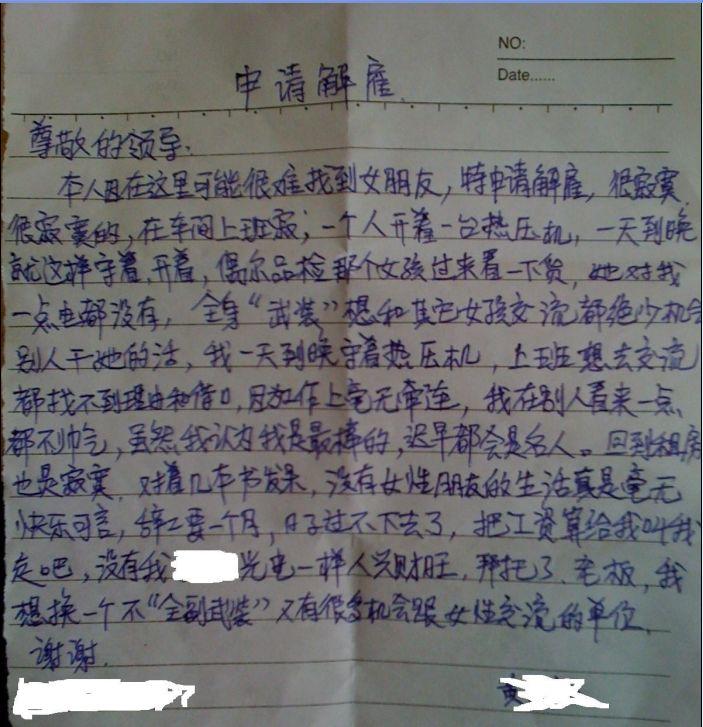 NO:
Date......
申请解雇
尊敬的领导:
本人因在这里可能很难找到女朋友,特申请解雇,很寂寞
很寂寞的,在车间上班寂;一个人开着一台热压机,一天到晚
就这样守着.开着,偶尔品检那个女孩过来看一下货,她对我
一点电都没有,全身“武装”想和其它女孩交流都绝少机会
别人干她的活,我一天到晚守着热压机,上班想去交流
都找不到理由和借口,因工作上毫无牵连,我在别人看来一点
都不帅气,虽然我认为我是最棒的,迟早都会是名人。回到租房
也是寂寞.对着几本书发呆,没有女性朋友的生活真是毫无
快乐可言,辞工要一个月,日子过不下去了,把工资算给我叫我
走吧,没有我 光电一样人兴财旺.拜托了.老板,我
想换一个不“全副武装”又有很多机会跟女性交流的单位.
谢谢.